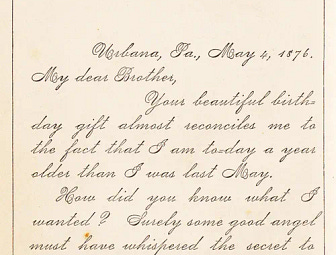 Urbana, Pa., May 4, 1876.
My dear Brother,
Your beautiful birth=
day gift almost reconciles me to
the fact that I am to=day a year
older than I was last May.
How did you know what I
wanted? Surely some good angel
must have whispered the secret to